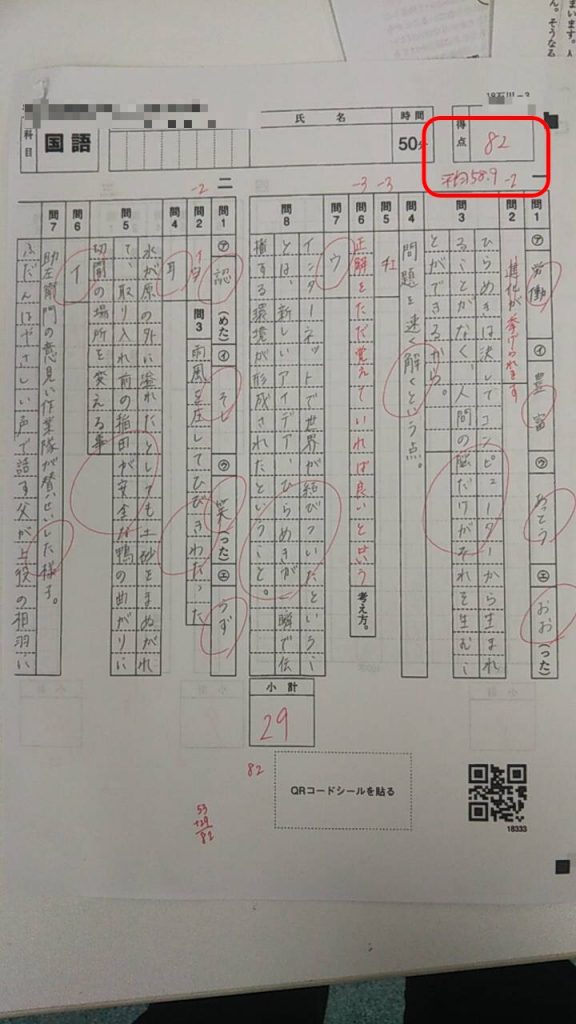 まいます。人
ん。そうなる
18石川－3
科目
国語
氏名
時間
50分
得点
82
平均58.9
-2
一
問1
㋐
労働
㋑
豊富
㋒
あっとう
㋓
おお
(った)
問2
進化が挙げられます
問3
ひらめきは決してコンピューターから生まれ
ることがなく、人間の脳だけがそれを生むこ
とができるから。
問4
問題を速く解くという点。
問5
-3
問6
-3
正解をただ覚えていれば良いという
考え方。
問7
ウ
問8
インターネットで世界が結びついたというこ
とは、新しいアイデア、ひらめきが一瞬で伝
播する環境が形成されたということ。
小計
29
二
-2
問1
㋐
認
(めた)
㋑
そし
㋒
笑
(った)
㋓
うず
問2
イタ
問3
雨風を圧してひびきわたった
問4
耳
問5
水が原の外に溢れたとしても土砂をまぬがれ
て、取り入れ前の稲田が安全な鴨の曲がりに
切開の場所を変える事
問6
イ
問7
助左衛門の意見に作業隊が賛せいした様子。
ふだんはやさしい声で話す父が上役の相羽に
82
53
+29
82
QRコードシールを貼る
18333